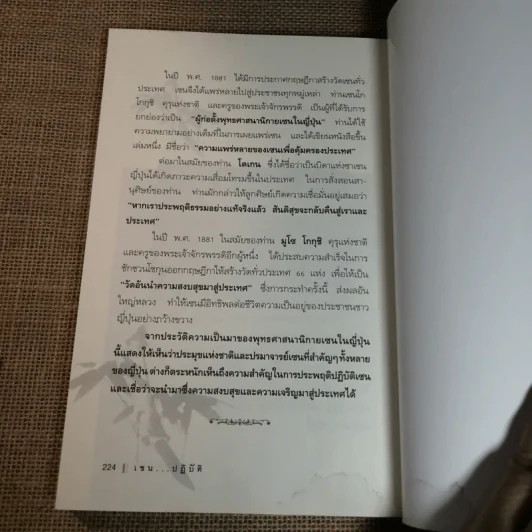 ในปี พ.ศ. 1881 ได้มีการประกาศกฤษฎีกาสร้างวัดเซนทั่ว
ประเทศ เซนจึงได้แพร่หลายไปสู่ประชาชนทุกหมู่เหล่า ท่านเซนโก
โกกุชิ คุรุแห่งชาติ และครูของพระเจ้าจักรพรรดิ เป็นผู้ที่ได้รับการ
ยกย่องว่าเป็น "ผู้ก่อตั้งพุทธศาสนานิกายเซนในญี่ปุ่น" ท่านได้ใช้
ความพยายามอย่างเต็มที่ในการเผยแพร่เซน และได้เขียนหนังสือขึ้น
เล่มหนึ่ง มีชื่อว่า "ความแพร่หลายของเซนเพื่อคุ้มครองประเทศ"
ต่อมาในสมัยของท่าน โดเกน ซึ่งได้ชื่อว่าเป็นบิดาแห่งชาเซน
ญี่ปุ่นได้เกิดภาวะความเสื่อมโทรมขึ้นในประเทศ ในการสั่งสอนสา-
นุศิษย์ของท่าน ท่านมักกล่าวให้ลูกศิษย์เกิดความเชื่อมั่นอยู่เสมอว่า
"หากเราประพฤติธรรมอย่างแท้จริงแล้ว สันติสุขจะกลับคืนสู่เราและ
ประเทศ"
ในปี พ.ศ. 1881 ในสมัยของท่าน มูโซ โกกุชิ คุรุแห่งชาติ
และครูของพระเจ้าจักรพรรดิอีกผู้หนึ่ง ได้ประสบความสำเร็จในการ
ชักชวนโชกุนออกกฤษฎีกาให้สร้างวัดทั่วประเทศ 66 แห่ง เพื่อให้เป็น
"วัดอันนำความสงบสุขมาสู่ประเทศ" ซึ่งการกระทำครั้งนี้ ส่งผลอัน
ใหญ่หลวง ทำให้เซนมีอิทธิพลต่อชีวิตความเป็นอยู่ของประชาชนชาว
ญี่ปุ่นอย่างกว้างขวาง
จากประวัติความเป็นมาของพุทธศาสนานิกายเซนในญี่ปุ่น
นี้แสดงให้เห็นว่าประมุขแห่งชาติและปรมาจารย์เซนที่สำคัญๆ ทั้งหลาย
ของญี่ปุ่น ต่างก็ตระหนักเห็นถึงความสำคัญในการประพฤติปฏิบัติเซน
และเชื่อว่าจะนำมาซึ่งความสงบสุขและความเจริญมาสู่ประเทศได้
224 เซน...ปฏิบัติ